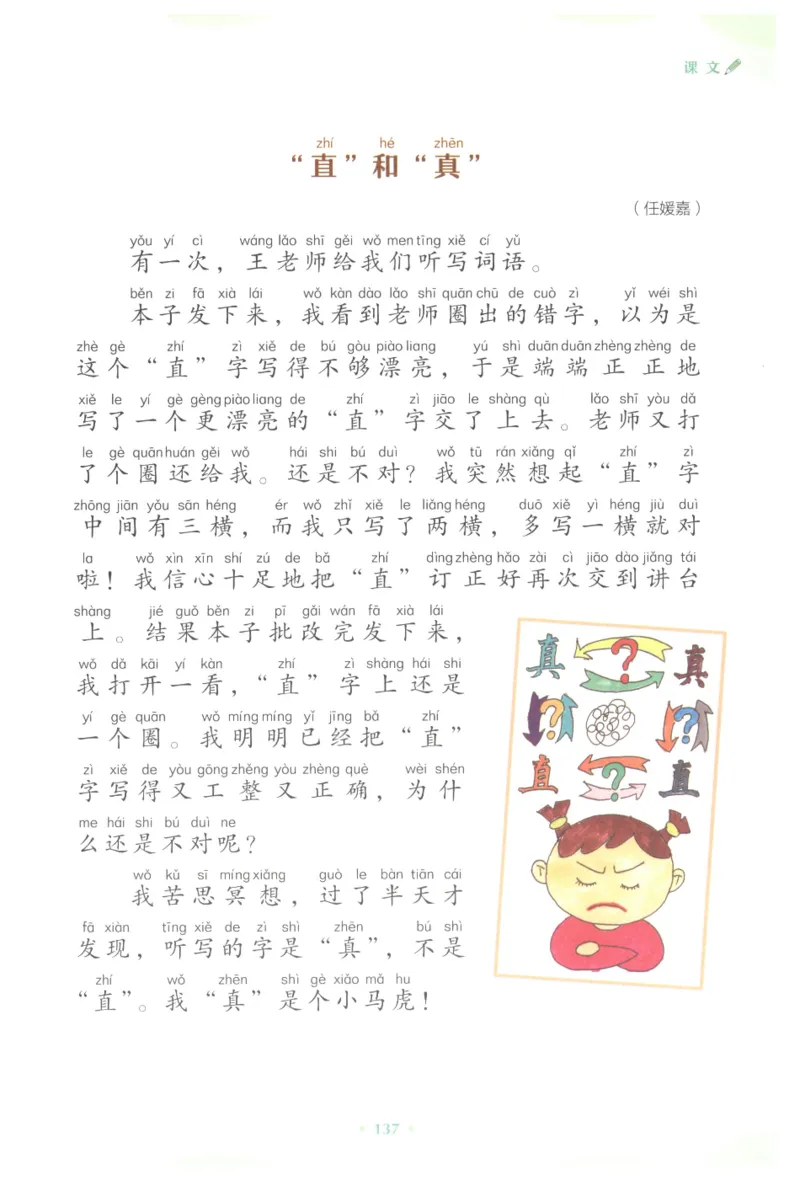 课 文
zhí hé zhēn
“直”和“真”
（任媛嘉）
yǒu yí cì wáng lǎo shī gěi wǒ men tīng xiě cí yǔ
有一次，王老师给我们听写词语。
běn zi fā xià lái wǒ kàn dào lǎo shī quān chū de cuò zì yǐ wéi shì
本子发下来，我看到老师圈出的错字，以为是
zhè gè zhí zì xiě de bú gòu piào liang yú shì duān duān zhèng zhèng de
这个“直”字写得不够漂亮，于是端端正正地
xiě le yí gè gèng piào liang de zhí zì jiāo le shàng qù lǎo shī yòu dǎ
写了一个更漂亮的“直”字交了上去。老师又打
le gè quān huán gěi wǒ hái shi bú duì wǒ tū rán xiǎng qǐ zhí zì
了个圈还给我。还是不对？我突然想起“直”字
zhōng jiān yǒu sān héng ér wǒ zhǐ xiě le liǎng héng duō xiě yì héng jiù duì
中间有三横，而我只写了两横，多写一横就对
la wǒ xìn xīn shí zú de bǎ zhí dìng zhèng hǎo zài cì jiāo dào jiǎng tái
啦！我信心十足地把“直”订正好再次交到讲台
shàng jié guǒ běn zi pī gǎi wán fā xià lái
上。结果本子批改完发下来，
wǒ dǎ kāi yí kàn zhí zì shàng hái shi
我打开一看，“直”字上还是
yí gè quān wǒ míng míng yǐ jīng bǎ zhí
一个圈。我明明已经把“直”
zì xiě de yòu gōng zhěng yòu zhèng què wèi shén
字写得又工整又正确，为什
me hái shi bú duì ne
么还是不对呢？
wǒ kǔ sī míng xiǎng guò le bàn tiān cái
我苦思冥想，过了半天才
fā xiàn tīng xiě de zì shì zhēn bú shì
发现，听写的字是“真”，不是
zhí wǒ zhēn shì gè xiǎo mǎ hu
“直”。我“真”是个小马虎！
真 ? 真
? ?
直 ? 直
137